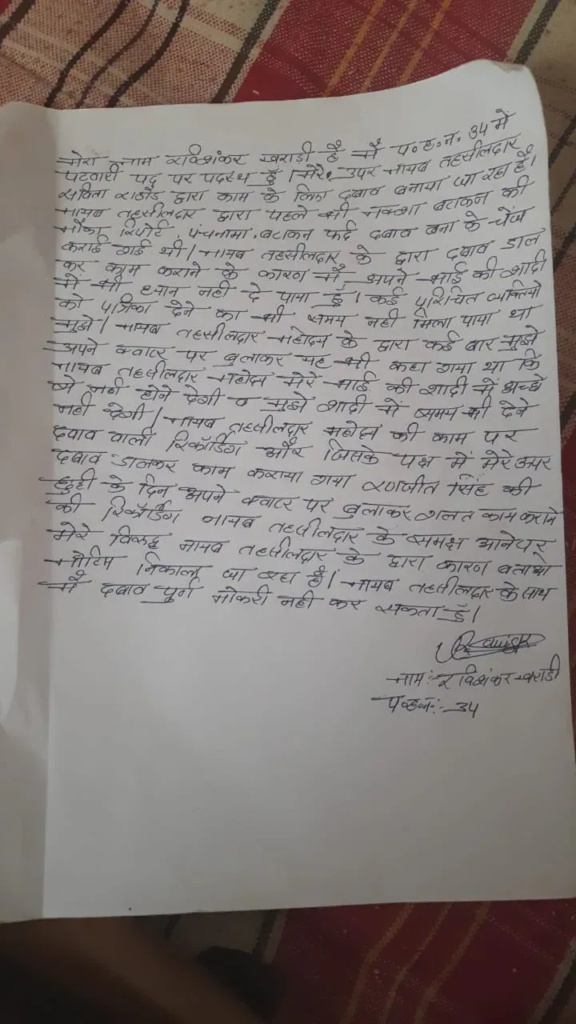 मेरा नाम रविशंकर खराड़ी है मैं प.ह.न. 34 में
पटवारी पद पर पदस्थ हूँ। मेरे उपर नायब तहसीलदार
सविता राठौड द्वारा काम के लिए दबाव बनाया जा रहा है।
नायब तहसीलदार द्वारा पहले भी नक्शा बटाकन की
मौका रिपोर्ट, पंचनामा, बटाकन फर्द दबाव बना के चेंज
कराई गई थी। नायब तहसीलदार के द्वारा दबाव डाल
कर काम कराने के कारण मैं अपने भाई की शादी
मे भी ध्यान नही दे पाया हूँ। कई परिचित व्यक्तियो
को पत्रिका देने का भी समय नही मिला पाया था
मुझे। नायब तहसीलदार महोदय के द्वारा कई बार मुझे
अपने क्वाटर पर बुलाकर यह भी कहा गया था कि
नायब तहसीलदार महोदय मेरे भाई की शादी मे अच्छे
से नही होने देगी व मुझे शादी मे समय भी देने
नही देगी। नायब तहसीलदार महोदय की काम पर
दबाव वाली रिकॉर्डिंग और जिसके पक्ष में मेरे ऊपर
दबाव डालकर काम कराया गया रणजीत सिंह की
छुट्टी के दिन अपने क्वाटर पर बुलाकर गलत काम कराने
की रिकॉर्डिंग नायब तहसीलदार के समक्ष आने पर
मेरे विरूद्ध नायब तहसीलदार के द्वारा कारण बताओ
नोटिस निकाला जा रहा है। नायब तहसीलदार के साथ
मैं दबाव पुर्ण नौकरी नही कर सकता हूँ।
नाम:- रविशंकर खराडी
प.ह.न.:- 34